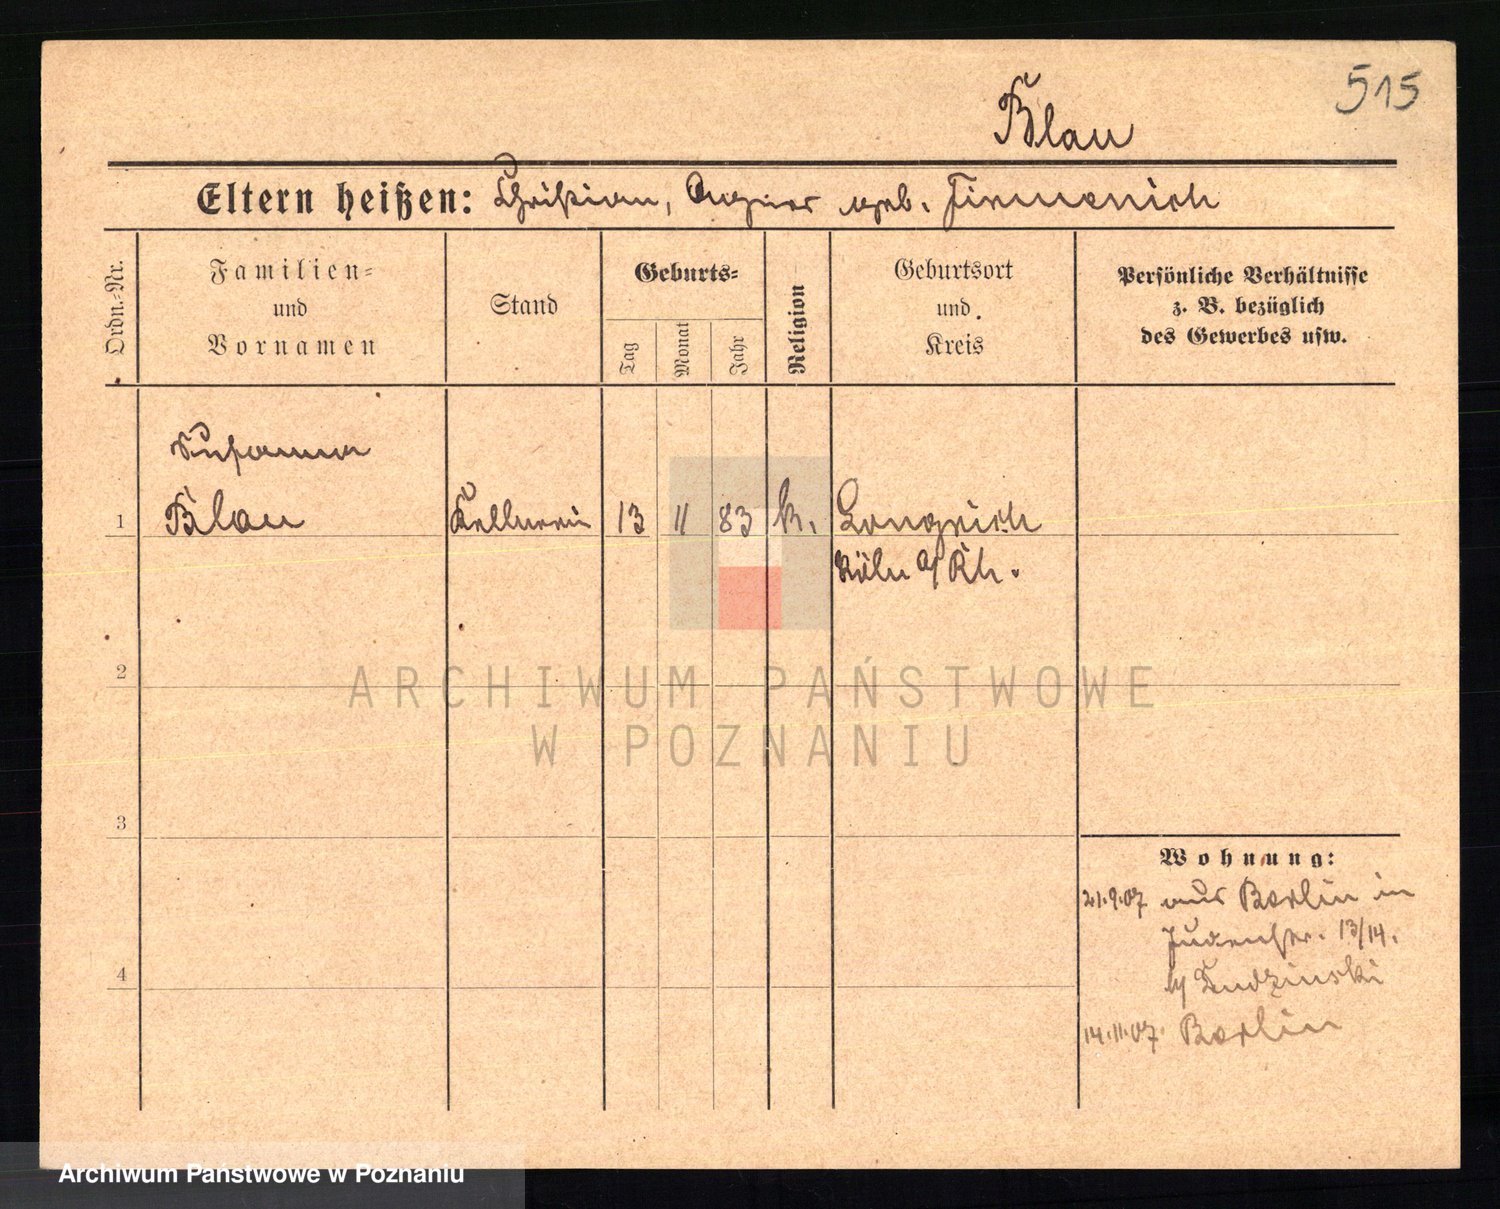 515
Blau
Eltern heißen: Christian, Agnes geb. Firmenich
Ordn.-Nr.
Familien-
und
Vornamen
Stand
Geburts-
Tag
Monat
Jahr
Religion
Geburtsort
und
Kreis
Persönliche Verhältnisse
z. B. bezüglich
des Gewerbes usw.
Susanna
1 Blau Kellnerin 13 11 83 k. Longerich
Köln a/Rh.
2
ARCHIWUM PAŃSTWOWE
W POZNANIU
3
4
Wohnung:
21.9.07 aus Berlin in
Judenstr. 13/14.
b/ Kudzinski
14.11.07. Berlin
Archiwum Państwowe w Poznaniu